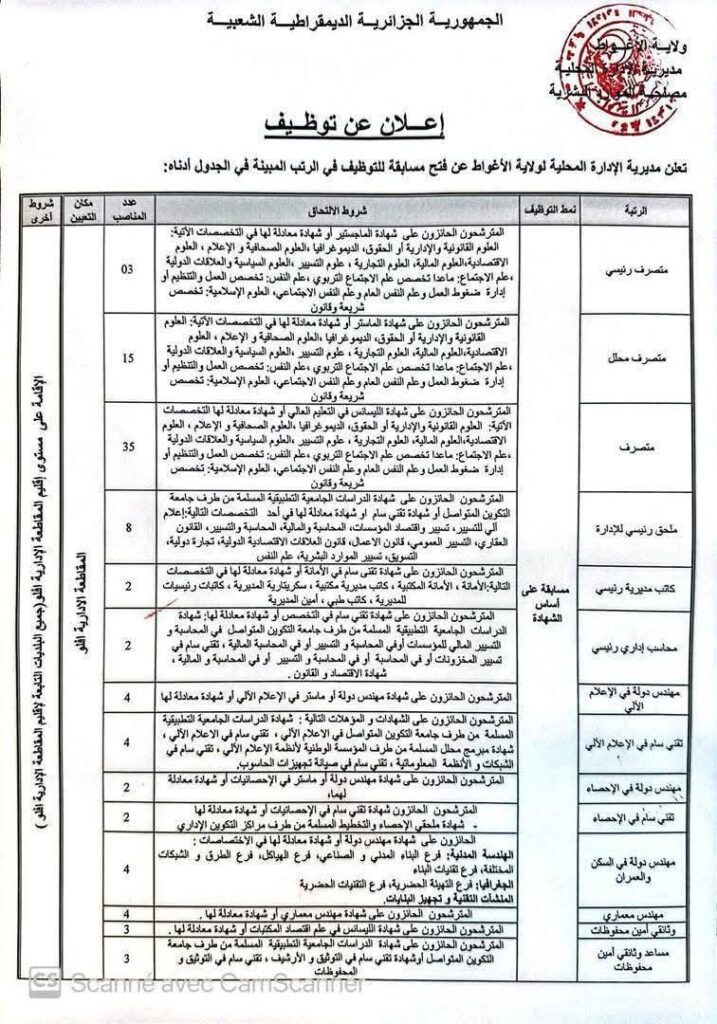 الجمهورية الجزائرية الديمقراطية الشعبية
ولاية الأغواط
مديرية الإدارة المحلية
مصلحة الموارد البشرية
إعلان عن توظيف
تعلن مديرية الإدارة المحلية لولاية الأغواط عن فتح مسابقة للتوظيف في الرتب المبينة في الجدول أدناه:
الرتبة
نمط التوظيف
شروط الالتحاق
عدد المناصب
مكان التعيين
شروط أخرى
متصرف رئيسي
المترشحون الحائزون على شهادة الماجستير أو شهادة معادلة لها في التخصصات الآتية:
العلوم القانونية والإدارية أو الحقوق، الديموغرافيا ،العلوم الصحافية و الإعلام ، العلوم
الاقتصادية،العلوم المالية، العلوم التجارية ، علوم التسيير ،العلوم السياسية والعلاقات الدولية
،علم الاجتماع: ماعدا تخصص علم الاجتماع التربوي ،علم النفس: تخصص العمل والتنظيم أو
إدارة ضغوط العمل وعلم النفس العام وعلم النفس الاجتماعي، العلوم الإسلامية: تخصص
شريعة وقانون
03
متصرف محلل
المترشحون الحائزون على شهادة الماستر أو شهادة معادلة لها في التخصصات الآتية: العلوم
القانونية والإدارية أو الحقوق، الديموغرافيا ،العلوم الصحافية و الإعلام ، العلوم
الاقتصادية،العلوم المالية، العلوم التجارية ، علوم التسيير ،العلوم السياسية والعلاقات الدولية
،علم الاجتماع: ماعدا تخصص علم الاجتماع التربوي ،علم النفس: تخصص العمل والتنظيم أو
إدارة ضغوط العمل وعلم النفس العام وعلم النفس الاجتماعي، العلوم الإسلامية: تخصص
شريعة وقانون
15
متصرف
المترشحون الحائزون على شهادة الليسانس في التعليم العالي أو شهادة معادلة لها التخصصات
الآتية: العلوم القانونية والإدارية أو الحقوق، الديموغرافيا ،العلوم الصحافية و الإعلام ، العلوم
الاقتصادية،العلوم المالية، العلوم التجارية ، علوم التسيير ،العلوم السياسية والعلاقات الدولية
،علم الاجتماع: ماعدا تخصص علم الاجتماع التربوي ،علم النفس: تخصص العمل والتنظيم أو
إدارة ضغوط العمل وعلم النفس العام وعلم النفس الاجتماعي، العلوم الإسلامية: تخصص
شريعة وقانون
35
ملحق رئيسي للإدارة
المترشحون الحائزون على شهادة الدراسات الجامعية التطبيقية المسلمة من طرف جامعة
التكوين المتواصل أو شهادة تقني سام او شهادة معادلة لها في أحد التخصصات التالية:إعلام
آلي للتسيير، تسيير واقتصاد المؤسسات، المحاسبة والمالية، المحاسبة والتسيير، القانون
العقاري، التسيير العمومي، قانون الاعمال، قانون العلاقات الاقتصادية الدولية، تجارة دولية،
التسويق، تسيير الموارد البشرية، علم النفس
8
كاتب مديرية رئيسي
المترشحون الحائزون على شهادة تقني سام في الأمانة أو شهادة معادلة لها في التخصصات
التالية:الأمانة ، الأمانة المكتبية ، كاتب مديرية مكتبية ، سكريتارية المديرية ، كاتبات رئيسيات
للمديرية ، كاتب طبي ، أمين المديرية
2
مسابقة على
أساس
الشهادة
محاسب إداري رئيسي
المترشحون الحائزون على شهادة تقني سام في التخصص أو شهادة معادلة لها: شهادة
الدراسات الجامعية التطبيقية المسلمة من طرف جامعة التكوين المتواصل في المحاسبة و
التسيير المالي للمؤسسات أوفي المحاسبة و التسيير أو في المحاسبة المالية ، تقني سام في
تسيير المخزونات أو في المحاسبة أو في المحاسبة و التسيير أو في المحاسبة و المالية ،
شهادة الاقتصاد و القانون .
2
مهندس دولة في الإعلام
الآلي
المترشحون الحائزون على شهادة مهندس دولة أو ماستر في الإعلام الآلي أو شهادة معادلة لها
4
تقني سام في الإعلام الآلي
المترشحون الحائزون على الشهادات و المؤهلات التالية : شهادة الدراسات الجامعية التطبيقية
المسلمة من طرف جامعة التكوين المتواصل في الاعلام الآلي ، تقني سام في الاعلام الآلي ،
شهادة مبرمج محلل المسلمة من طرف المؤسسة الوطنية لأنظمة الإعلام الآلي ، تقني سام في
الشبكات و الأنظمة المعلوماتية ، تقني سام في صيانة تجهيزات الحاسوب.
4
مهندس دولة في الإحصاء
المترشحون الحائزون على شهادة مهندس دولة أو ماستر في الإحصائيات أو شهادة معادلة
لهما،
2
تقني سام في الإحصاء
المترشحون الحائزون شهادة تقني سام في الإحصائيات أو شهادة معادلة لها
- شهادة ملحقي الإحصاء والتخطيط المسلمة من طرف مراكز التكوين الإداري
2
مهندس دولة في السكن
والعمران
الحائزون على شهادة مهندس دولة أو شهادة معادلة لها في الاختصاصات :
الهندسة المدنية: فرع البناء المدني و الصناعي، فرع الهياكل، فرع الطرق و الشبكات
المختلفة، فرع تقنيات البناء
الجغرافيا: فرع التهيئة الحضرية، فرع التقنيات الحضرية
المنشآت التقنية و تجهيز البنايات.
4
مهندس معماري
المترشحون الحائزون على شهادة مهندس معماري أو شهادة معادلة لها .
4
وثائقي أمين محفوظات
المترشحون الحائزون على شهادة الليسانس في علم اقتصاد المكتبات أو شهادة معادلة لها .
3
مساعد وثائقي أمين
محفوظات
المترشحون الحائزون على شهادة الدراسات الجامعية التطبيقية المسلمة من طرف جامعة
التكوين المتواصل أوشهادة تقني سام في التوثيق و الأرشيف ، تقني سام في التوثيق و
المحفوظات
3
المقاطعة الإدارية افلو
الإقامة على مستوى إقليم المقاطعة الإدارية افلو(جميع البلديات التابعة لإقليم المقاطعة الإدارية افلو )
CS Scanné avec CamScanner